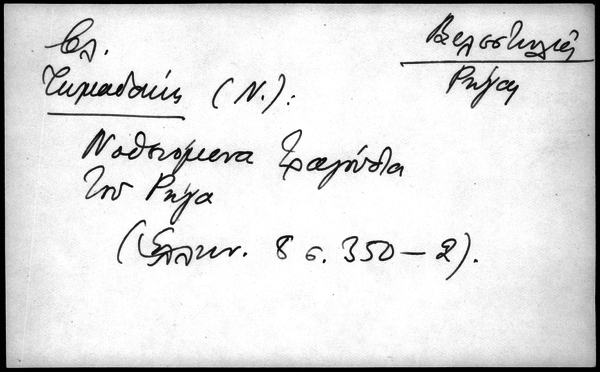 Βλ.
Βελεστινλής
Ρήγας
Τωμαδάκης (Ν.):
Νοθευόμενα τραγούδια
του Ρήγα
(Ελλην. 8 σ. 350-2).